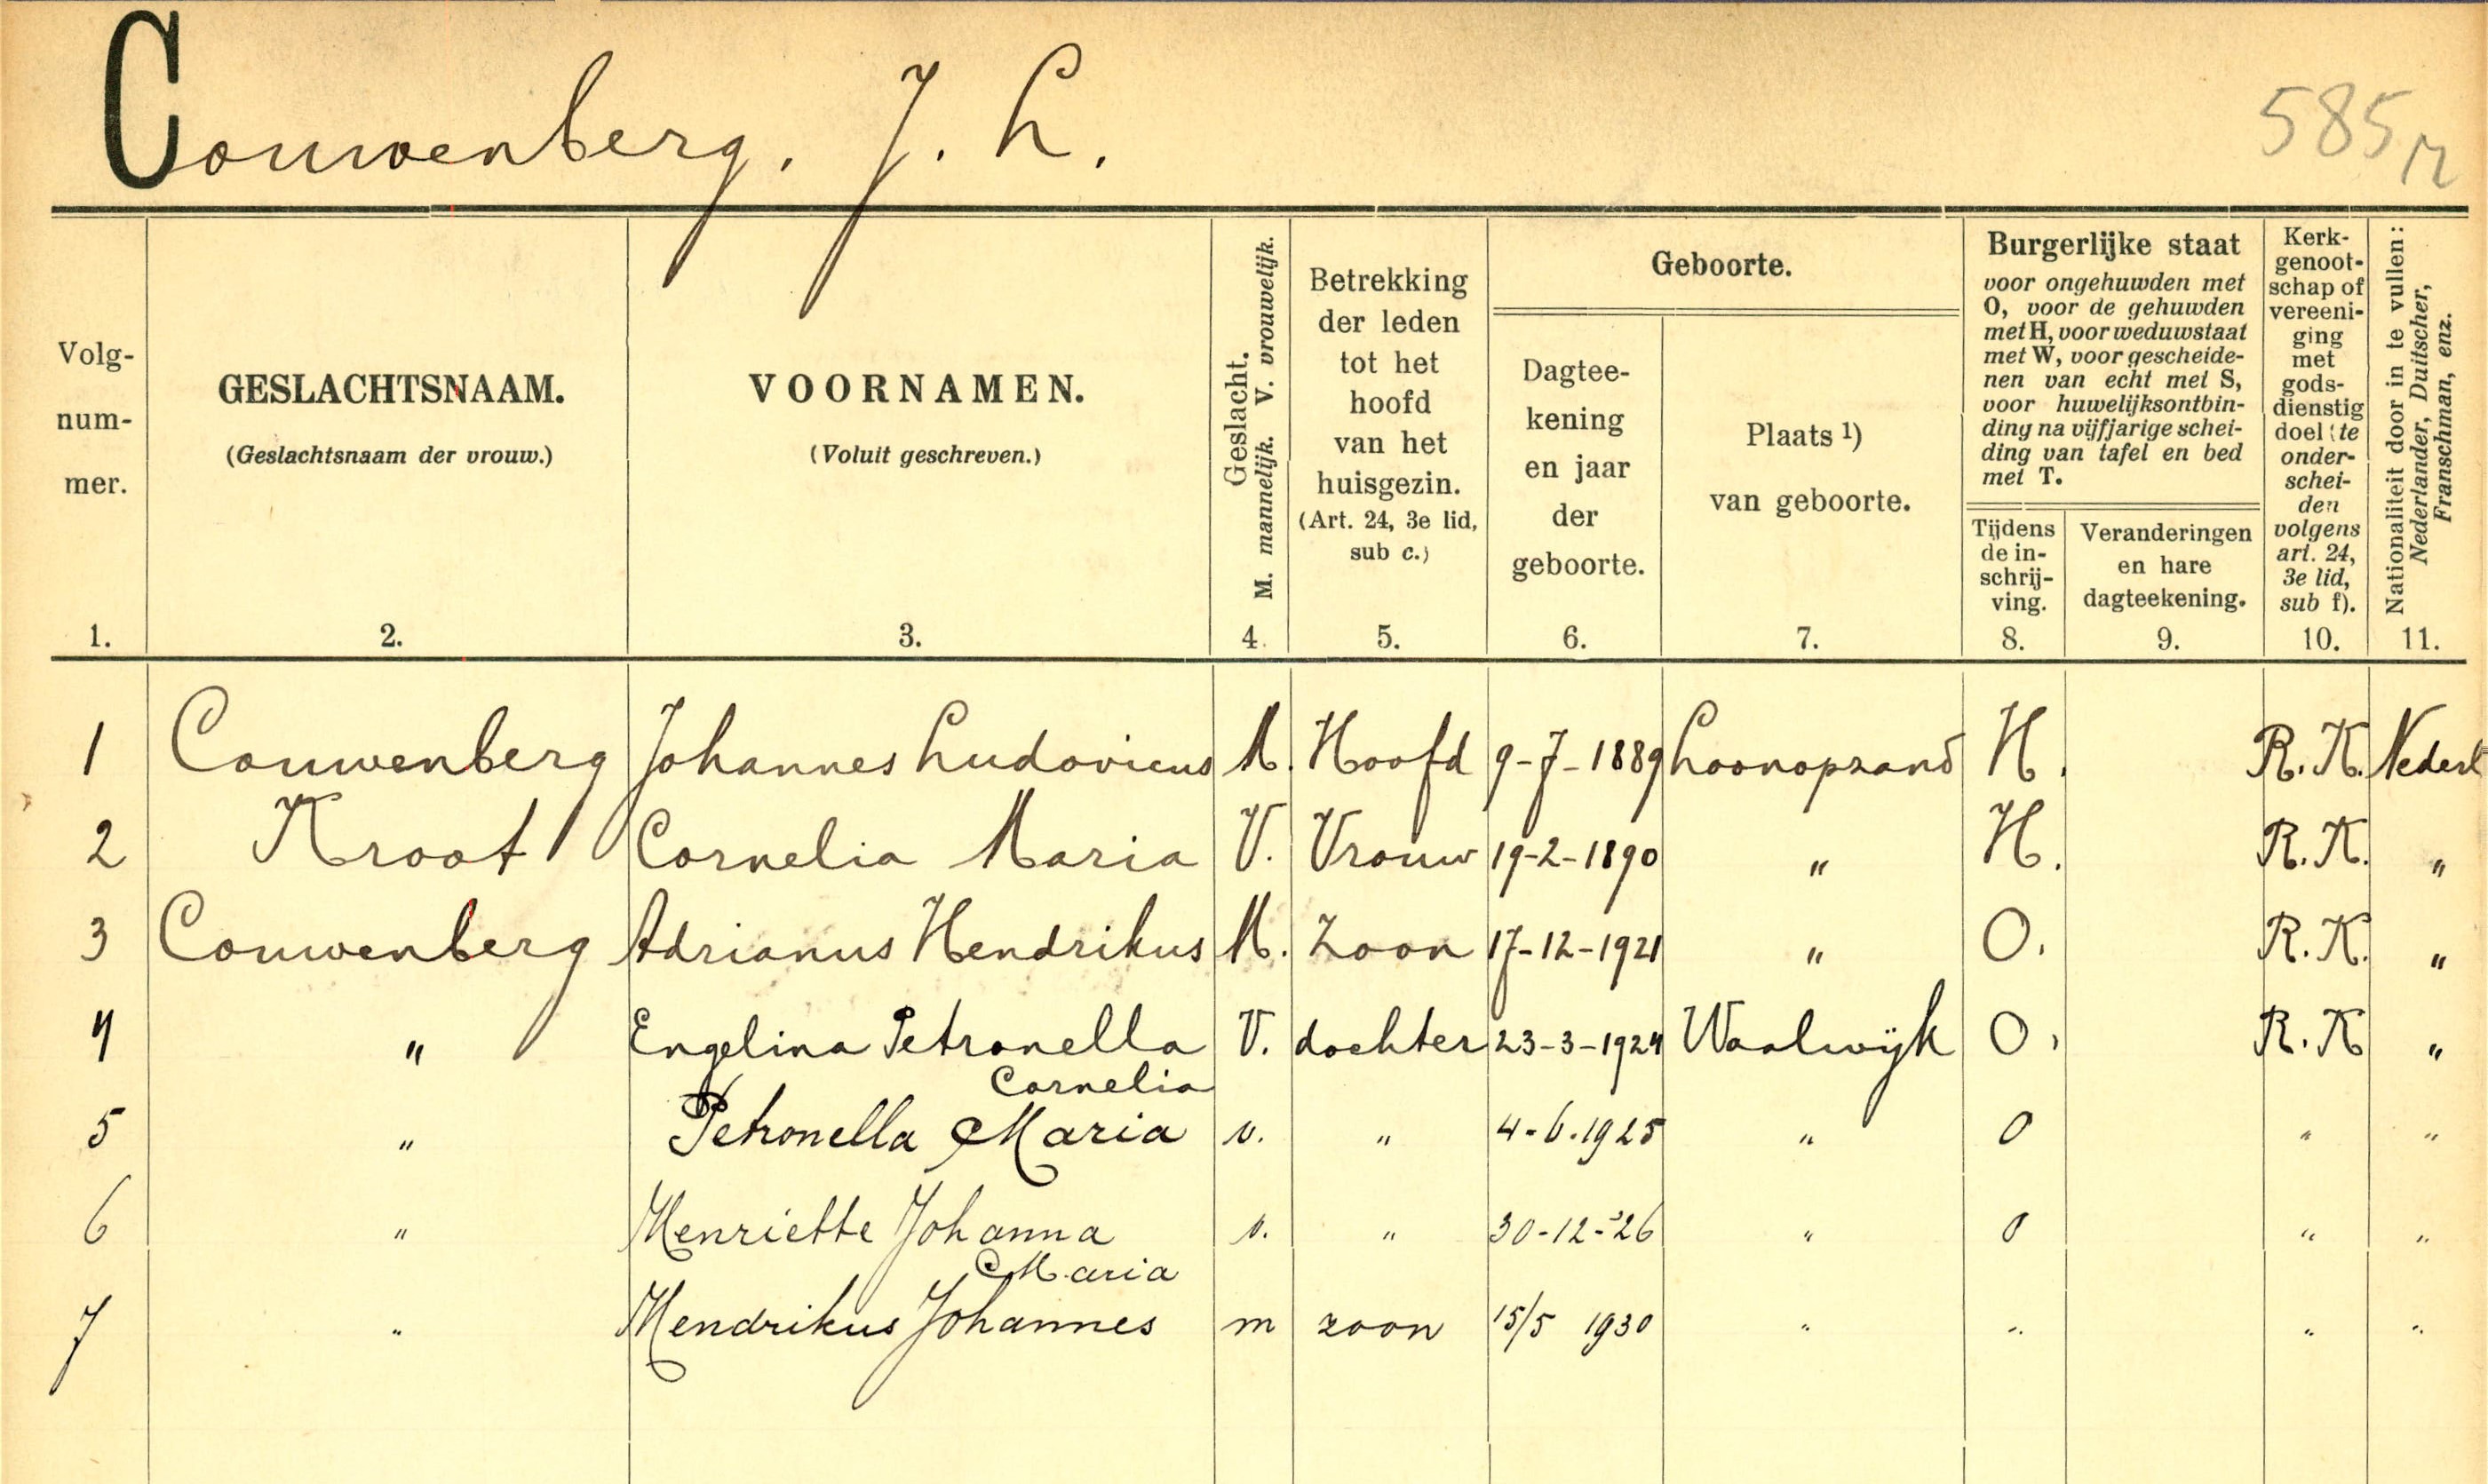 Couwenberg. J. L.
585
Volg-
num-
mer.
1.
GESLACHTSNAAM.
(Geslachtsnaam der vrouw.)
2.
VOORNAMEN.
(Voluit geschreven.)
3.
Geslacht.
M. mannelijk. V. vrouwelijk.
4.
Betrekking
der leden
tot het
hoofd
van het
huisgezin.
(Art. 24, 3e lid,
sub c.)
5.
Geboorte.
Dagtee-
kening
en jaar
der
geboorte.
6.
Plaats 1)
van geboorte.
7.
Burgerlijke staat
voor ongehuwden met
O, voor de gehuwden
met H, voor weduwstaat
met W, voor gescheide-
nen van echt met S,
voor huwelijksontbin-
ding na vijfjarige schei-
ding van tafel en bed
met T.
Tijdens
de in-
schrij-
ving.
8.
Veranderingen
en hare
dagteekening.
9.
Kerk-
genoot-
schap of
vereeni-
ging
met
gods-
dienstig
doel (te
onder-
schei-
den
volgens
art. 24,
3e lid,
sub f).
10.
Nationaliteit door in te vullen:
Nederlander, Duitscher,
Franschman, enz.
11.
1 Couwenberg Johannes Ludovicus M. Hoofd 9-7-1889 Loonopzand H. R.K. Nederl
2 Kroot Cornelia Maria V. Vrouw 19-2-1890 " H. R.K. "
3 Couwenberg Adrianus Hendrikus M. Zoon 17-12-1921 " O. R.K. "
4 " Engelina Petronella V. dochter 23-3-1924 Waalwijk O. R.K "
Cornelia
5 " Petronella Maria v. " 4-6-1925 " O " "
6 " Henriette Johanna v. " 30-12-'26 " O " "
Maria
7 " Hendrikus Johannes m zoon 15/5 1930 " " " "